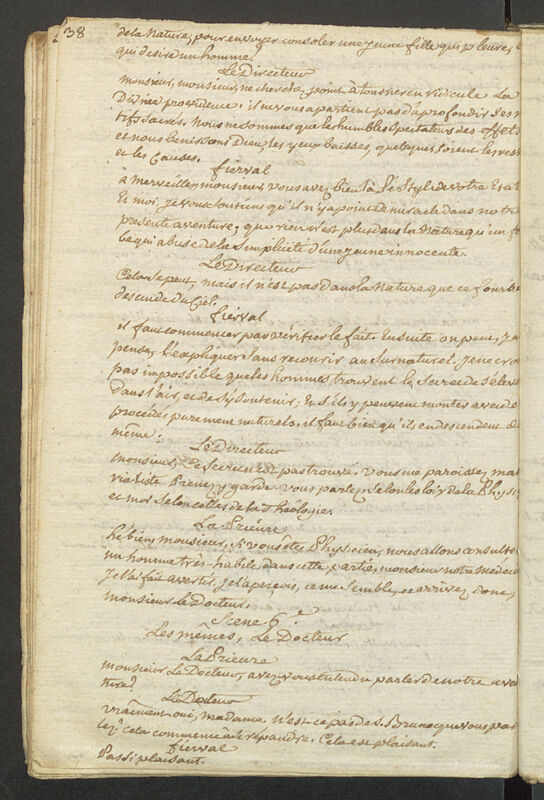 38
de la Nature, pour envoyer consoler une jeune fille qui pleure, e
qui desire un homme,
Le Directeur
monsieur, monsieur, ne cherchez point à tourner en ridicule La
Divine providence: il ne vous apartient pas d'aprofondir ses m
tifs sacrés. Nous ne sommes que les humbles spectateurs des effets
et nous benissons Dieu, les yeux baissés, quelques soient les
et les Causes.
fierval
à merveille, monsieur, vous avez bien là le Style de votre Etat
Et moi, je vous soutiens qu'il n'y a point de miracle dans notr
presente aventure; que rien n'est plus dans la Nature qu'un fo
be qui abuse de la Simplicité d'une jeune innocente.
Le Directeur
Cela se peut, mais il n'est pas dans la Nature que ce fourbe
descende du Ciel.
fierval
il faut commencer par vérifier le fait. Ensuite on peut, je
pense, l'expliquer Sans recourir au Surnaturel. Je ne cro
pas impossible que les hommes trouvent le Secret de S'élever
Dans l'air, et de S'y Soutenir; Et S'ils y peuvent monter avec de
procédés purement naturels, il faut bien qu'ils en descendent d
même.
Le Directeur
monsieur, ce Secret n'est pas trouvé. Vous me paroissez mat
rialiste. Prenez y garde. Vous parlez Selon les loix de la Physi
et moi Selon celles de la Théologie.
La Prieure
hé bien, monsieur, Si vous êtes Physicien, nous allons consulte
un homme très habile dans cette partie, monsieur notre médeci
Je l'ai fait avertir. Je l'aperçois, ce me Semble, arrivez donc,
monsieur Le Docteur.
Scene 6.e
Les mêmes, Le Docteur
La Prieure
monsieur Le Docteur, avez vous entendu parler de notre aven
ture?
Le Docteur
vraiment oui, madame. N'est-ce pas de S. Bruno que vous par
lez? cela commence à se répandre. Cela est plaisant.
fierval
Pas si plaisant.